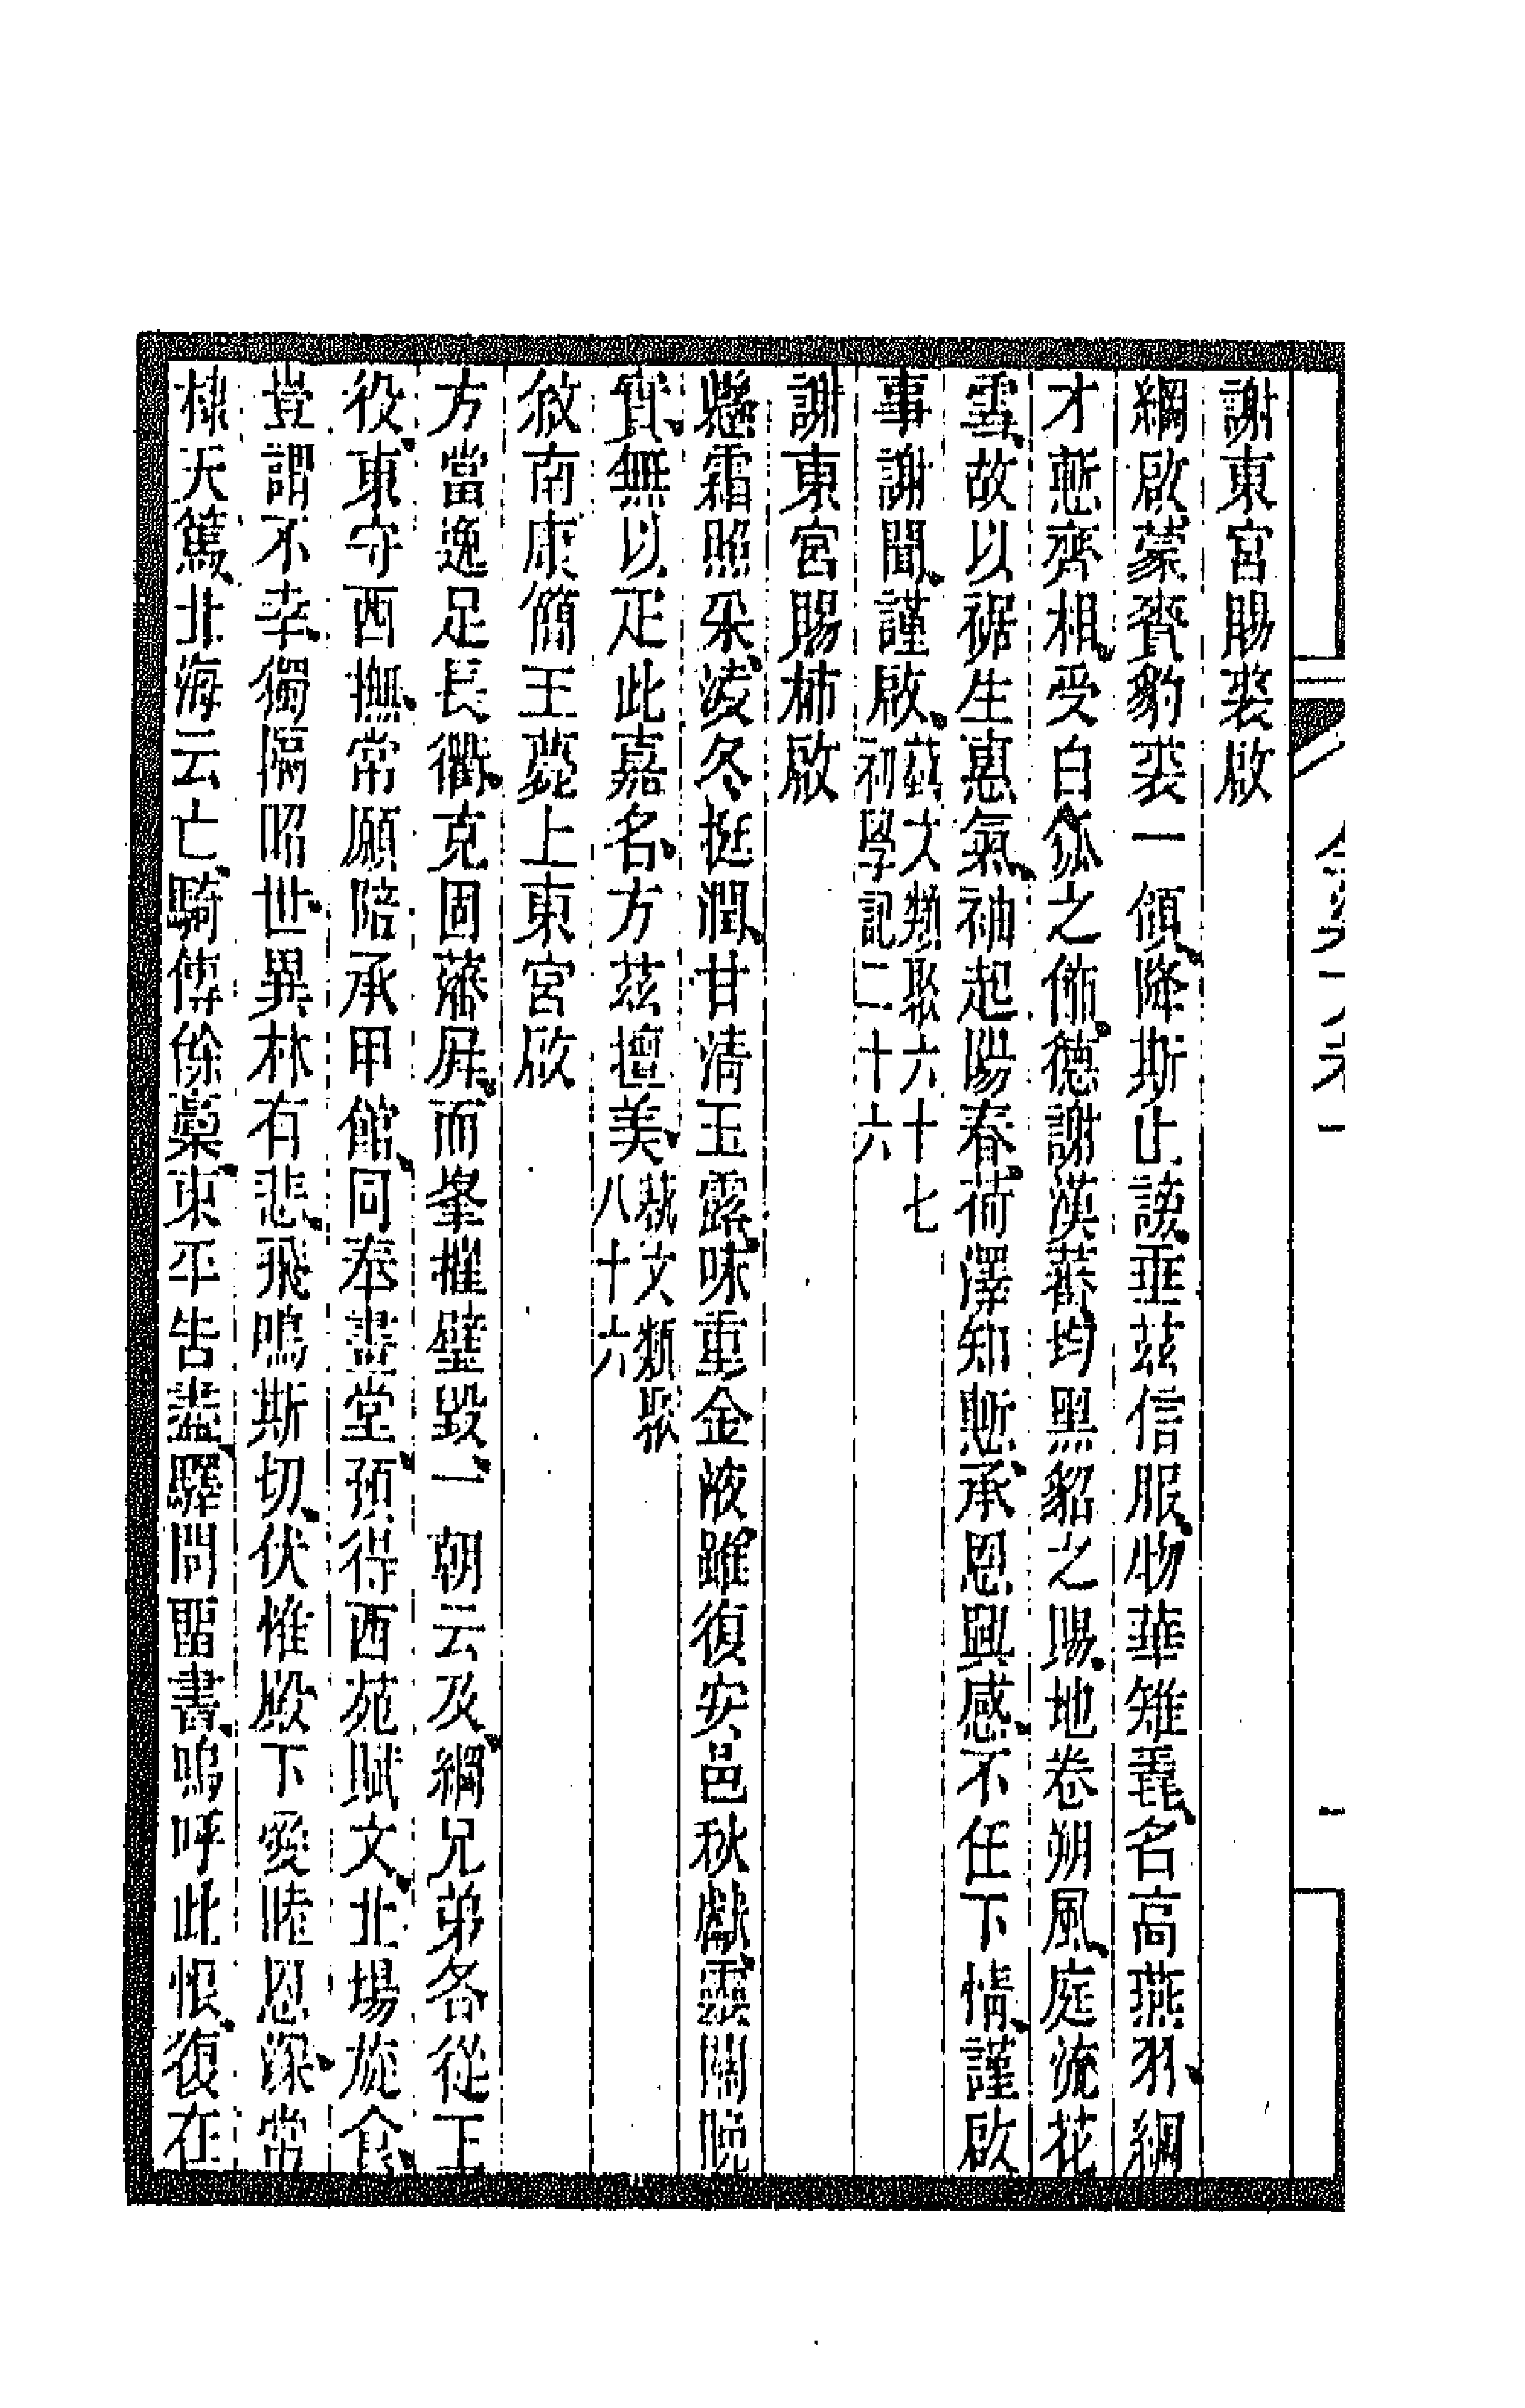 謝東宮賜裘啟
綱啟蒙賚豹裘一領降斯止謗垂茲信服物華雉毳名高燕羽綱
才慙齊相受白狐之飾德謝漢蕃均黑貂之賜地卷朔風庭流花
雪故以裾生惠氣袖起陽春荷澤知慙承恩興感不任下情謹啟
事謝聞謹啟藝文類聚六十七
初學記二十六
謝東宮賜柿啟
懸霜照采淩冬挺潤甘清玉露味重金液雖復安邑秋獻靈關晚
實無以疋此嘉名方茲擅美藝文類聚
八十六
敘南康簡王薨上東宮啟
方當逸足長衢克固藩屏而峯摧璧毀一朝云及綱兄弟各從王
役東守西撫常願陪承甲館同奉畫堂預得西苑賦文北場旋食
豈謂不幸獨隔昭世異林有悲飛鳴斯切伏惟殿下愛睦恩深常
棣天篤北海云亡騎傳餘藁東平告盡驛問留書嗚呼此恨復在